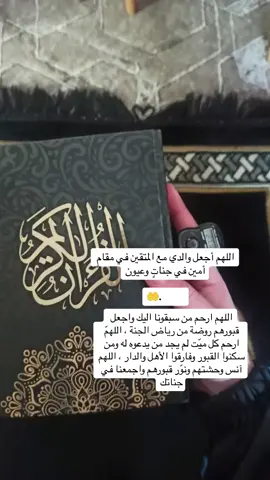 القرآن الكريم
اللهم أجعل والدي مع المتقين في مقام
أمين في جناتٍ وعيون
🤲.
اللهم ارحم من سبقونا اليك واجعل
قبورهم روضة من رياض الجنة ، اللهمّ
ارحم كل ميّت لم يجد من يدعوه له ومن
سكنوا القبور وفارقوا الأهل والدار ، اللهم
آنس وحشتهم ونوّر قبورهم واجمعنا في
جناتك